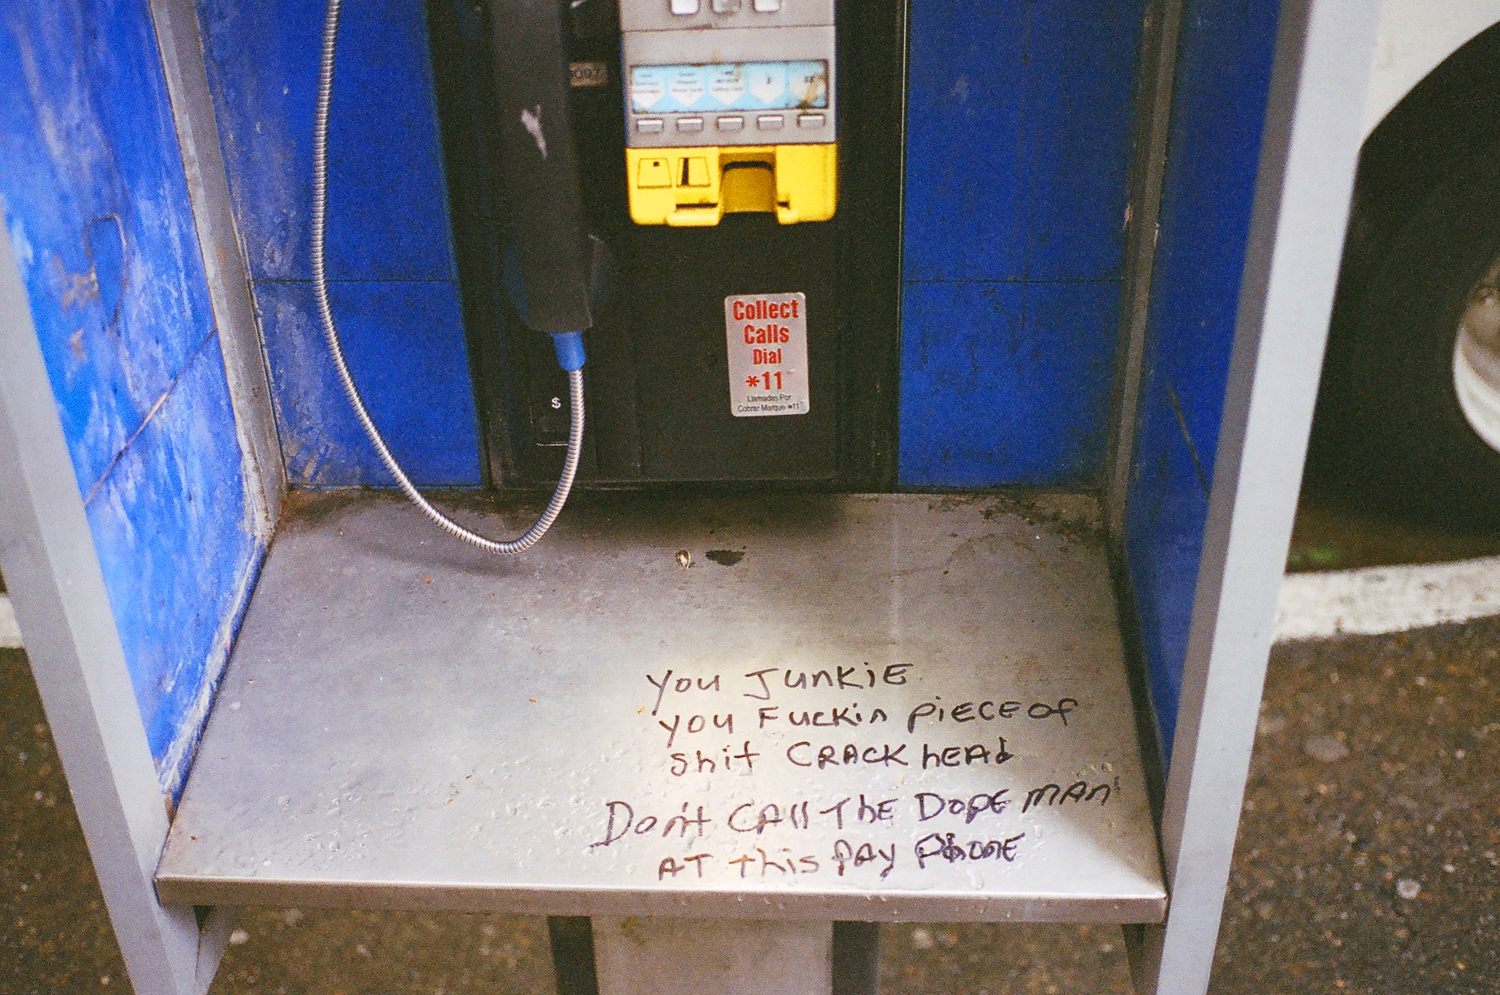 $
Collect
Calls
Dial
*11
Llamadas Por
Cobrar Marque *11
You JunKiE
you Fuckin piECE of
shit CRACK hEAd
Don't CAll ThE DopE MAN
AT This PAy PhonE